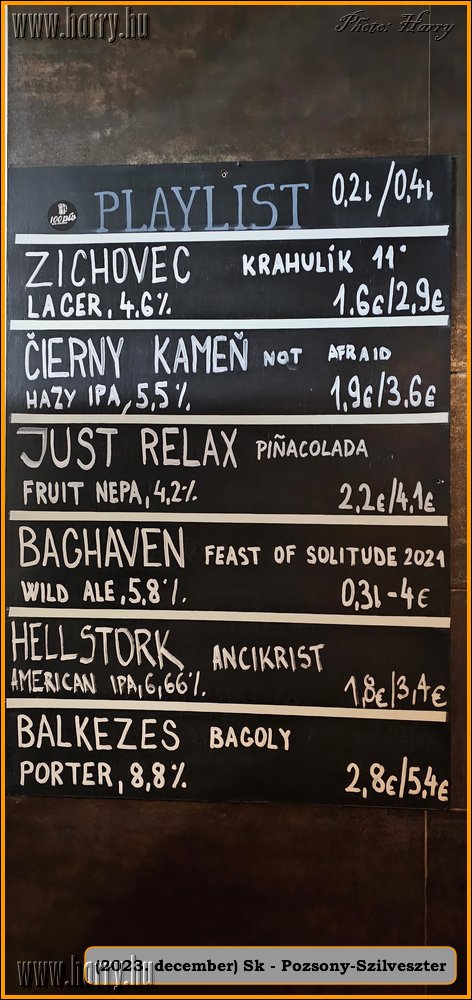 www.harry.hu
Photo: Harry
100 pív
PLAYLIST 0,2l/0,4l
ZICHOVEC KRAHULÍK 11°
LAGER, 4.6% 1.6€/2,9€
ČIERNY KAMEŇ NOT AFRAID
HAZY IPA, 5,5% 1,9€/3,6€
JUST RELAX PIÑACOLADA
FRUIT NEPA, 4,2% 2,2€/4,1€
BAGHAVEN FEAST OF SOLITUDE 2021
WILD ALE, 5,8% 0,3l-4€
HELLSTORK ANCIKRIST
AMERICAN IPA, 6,66% 1,8€/3,4€
BALKEZES BAGOLY
PORTER, 8,8% 2,8€/5,4€
(2023. december) Sk - Pozsony-Szilveszter
www.harry.hu